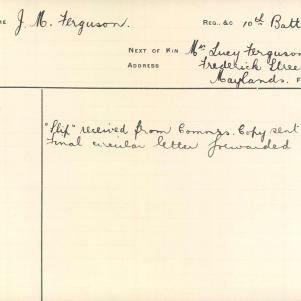 ME J. M. Ferguson. REG. &C 10th Batt
NEXT OF KIN Mrs Lucy Ferguson
ADDRESS Frederick Stree
Maylands.
"Slip" received from Commrs. Copy sent
Final circular letter forwarded